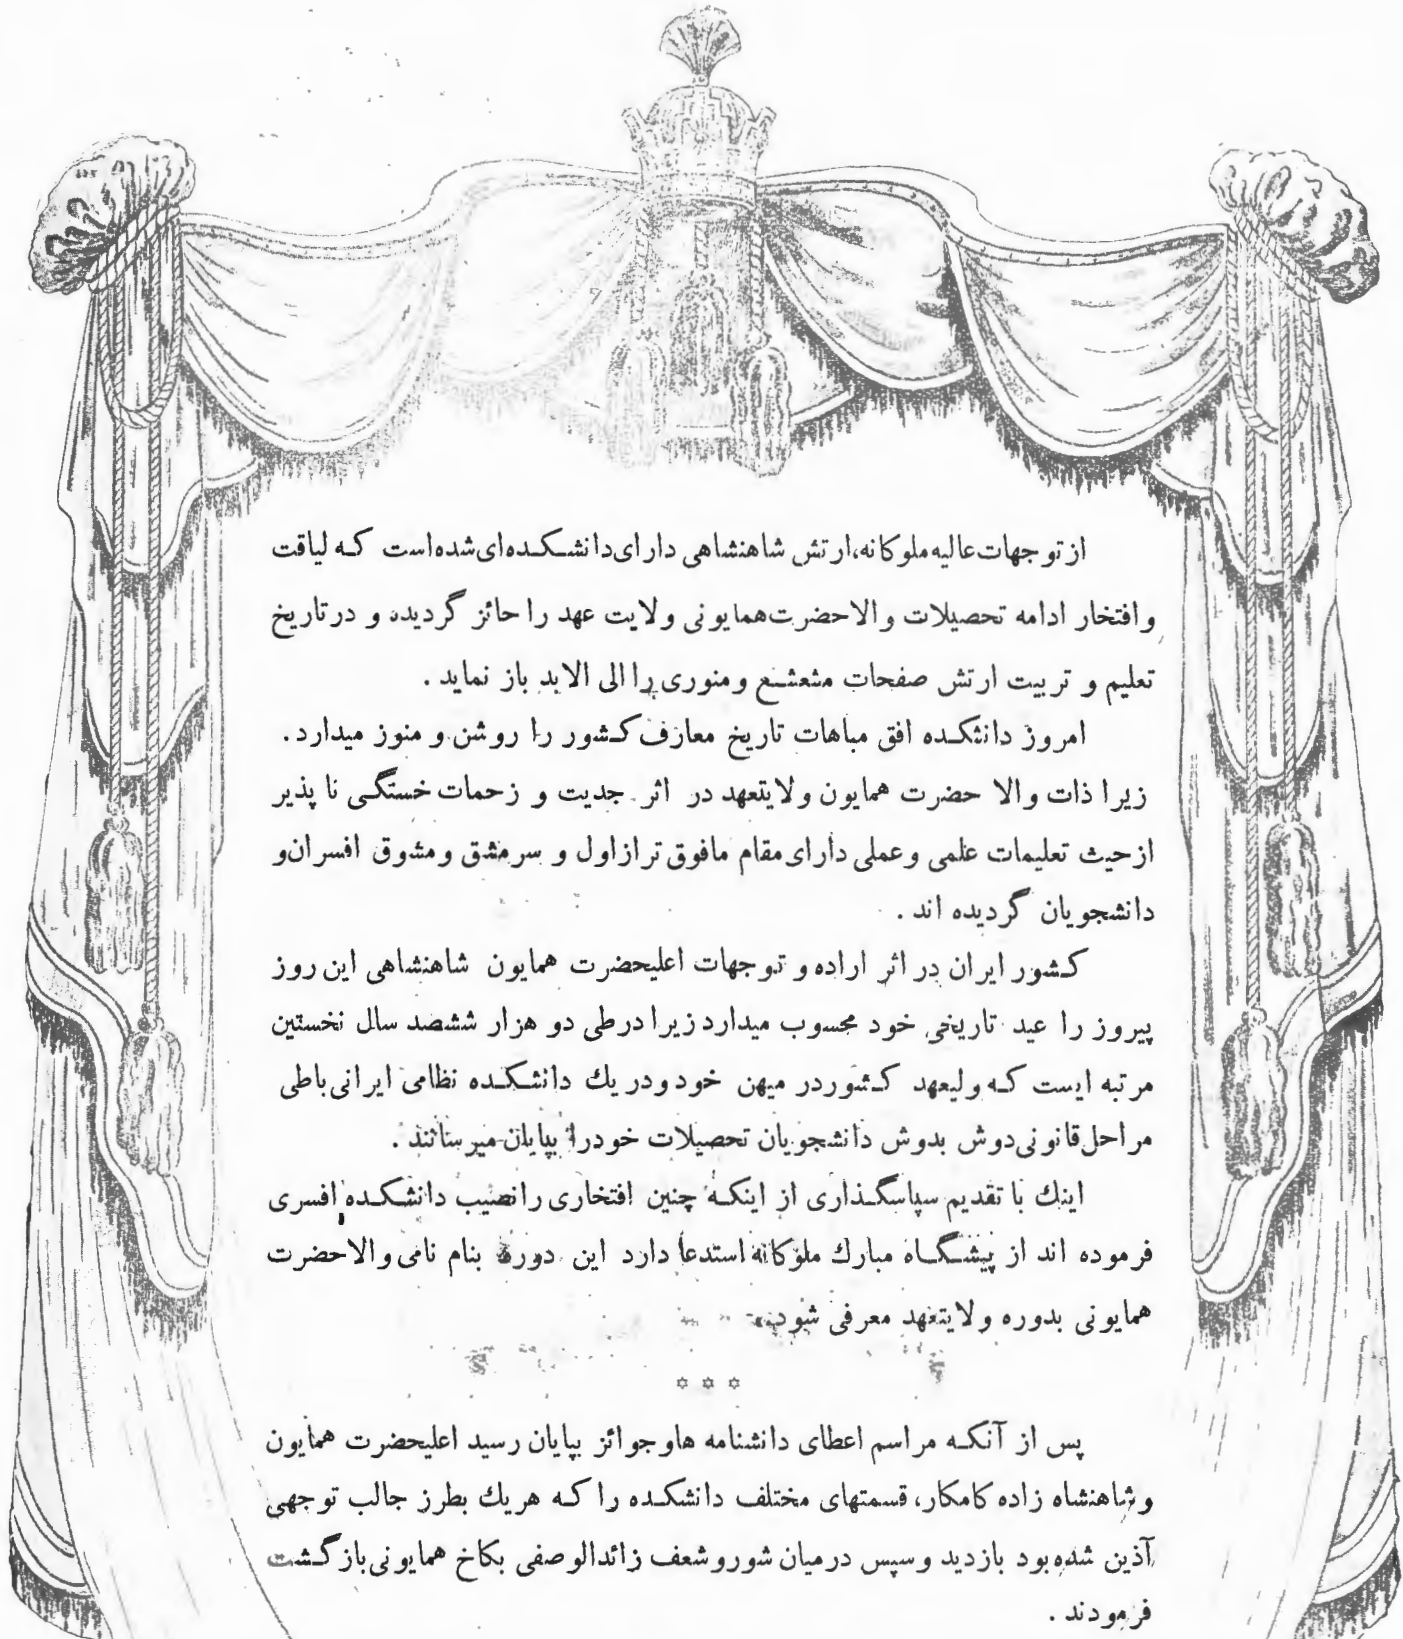 از توجهات عالیه ملوکانه، ارتش شاهنشاهی دارای دانشکده‌ای شده است که لیاقت
و افتخار ادامه تحصیلات والاحضرت همایونی ولایت عهد را حائز گردیده و در تاریخ
تعلیم و تربیت ارتش صفحات مشعشع و منوری را الی الابد باز نماید .
امروز دانشکده افق مباهات تاریخ معارف کشور را روشن و منور میدارد .
زیرا ذات والا حضرت همایون ولایتعهد در اثر جدیت و زحمات خستگی نا پذیر
از حیث تعلیمات علمی و عملی دارای مقام مافوق تر از اول و سرمشق و مشوق افسران و
دانشجویان گردیده اند .
کشور ایران در اثر اراده و توجهات اعلیحضرت همایون شاهنشاهی این روز
پیروز را عید تاریخی خود محسوب میدارد زیرا در طی دو هزار ششصد سال نخستین
مرتبه ایست که ولیعهد کشور در میهن خود و در یك دانشکده نظامی ایرانی با طی
مراحل قانونی دوش بدوش دانشجویان تحصیلات خود را بپایان میرسانند .
اینك با تقدیم سپاسگذاری از اینکه چنین افتخاری را نصیب دانشکده افسری
فرموده اند از پیشگاه مبارك ملوکانه استدعا دارد این دوره بنام نامی والاحضرت
همایونی بدوره ولایتعهد معرفی شود
✡ ✡ ✡
پس از آنکه مراسم اعطای دانشنامه ها و جوائز بپایان رسید اعلیحضرت همایون
و شاهنشاه زاده کامکار، قسمتهای مختلف دانشکده را که هریك بطرز جالب توجهی
آذین شده بود بازدید و سپس در میان شور و شعف زائدالوصفی بکاخ همایونی بازگشت
فرمودند .